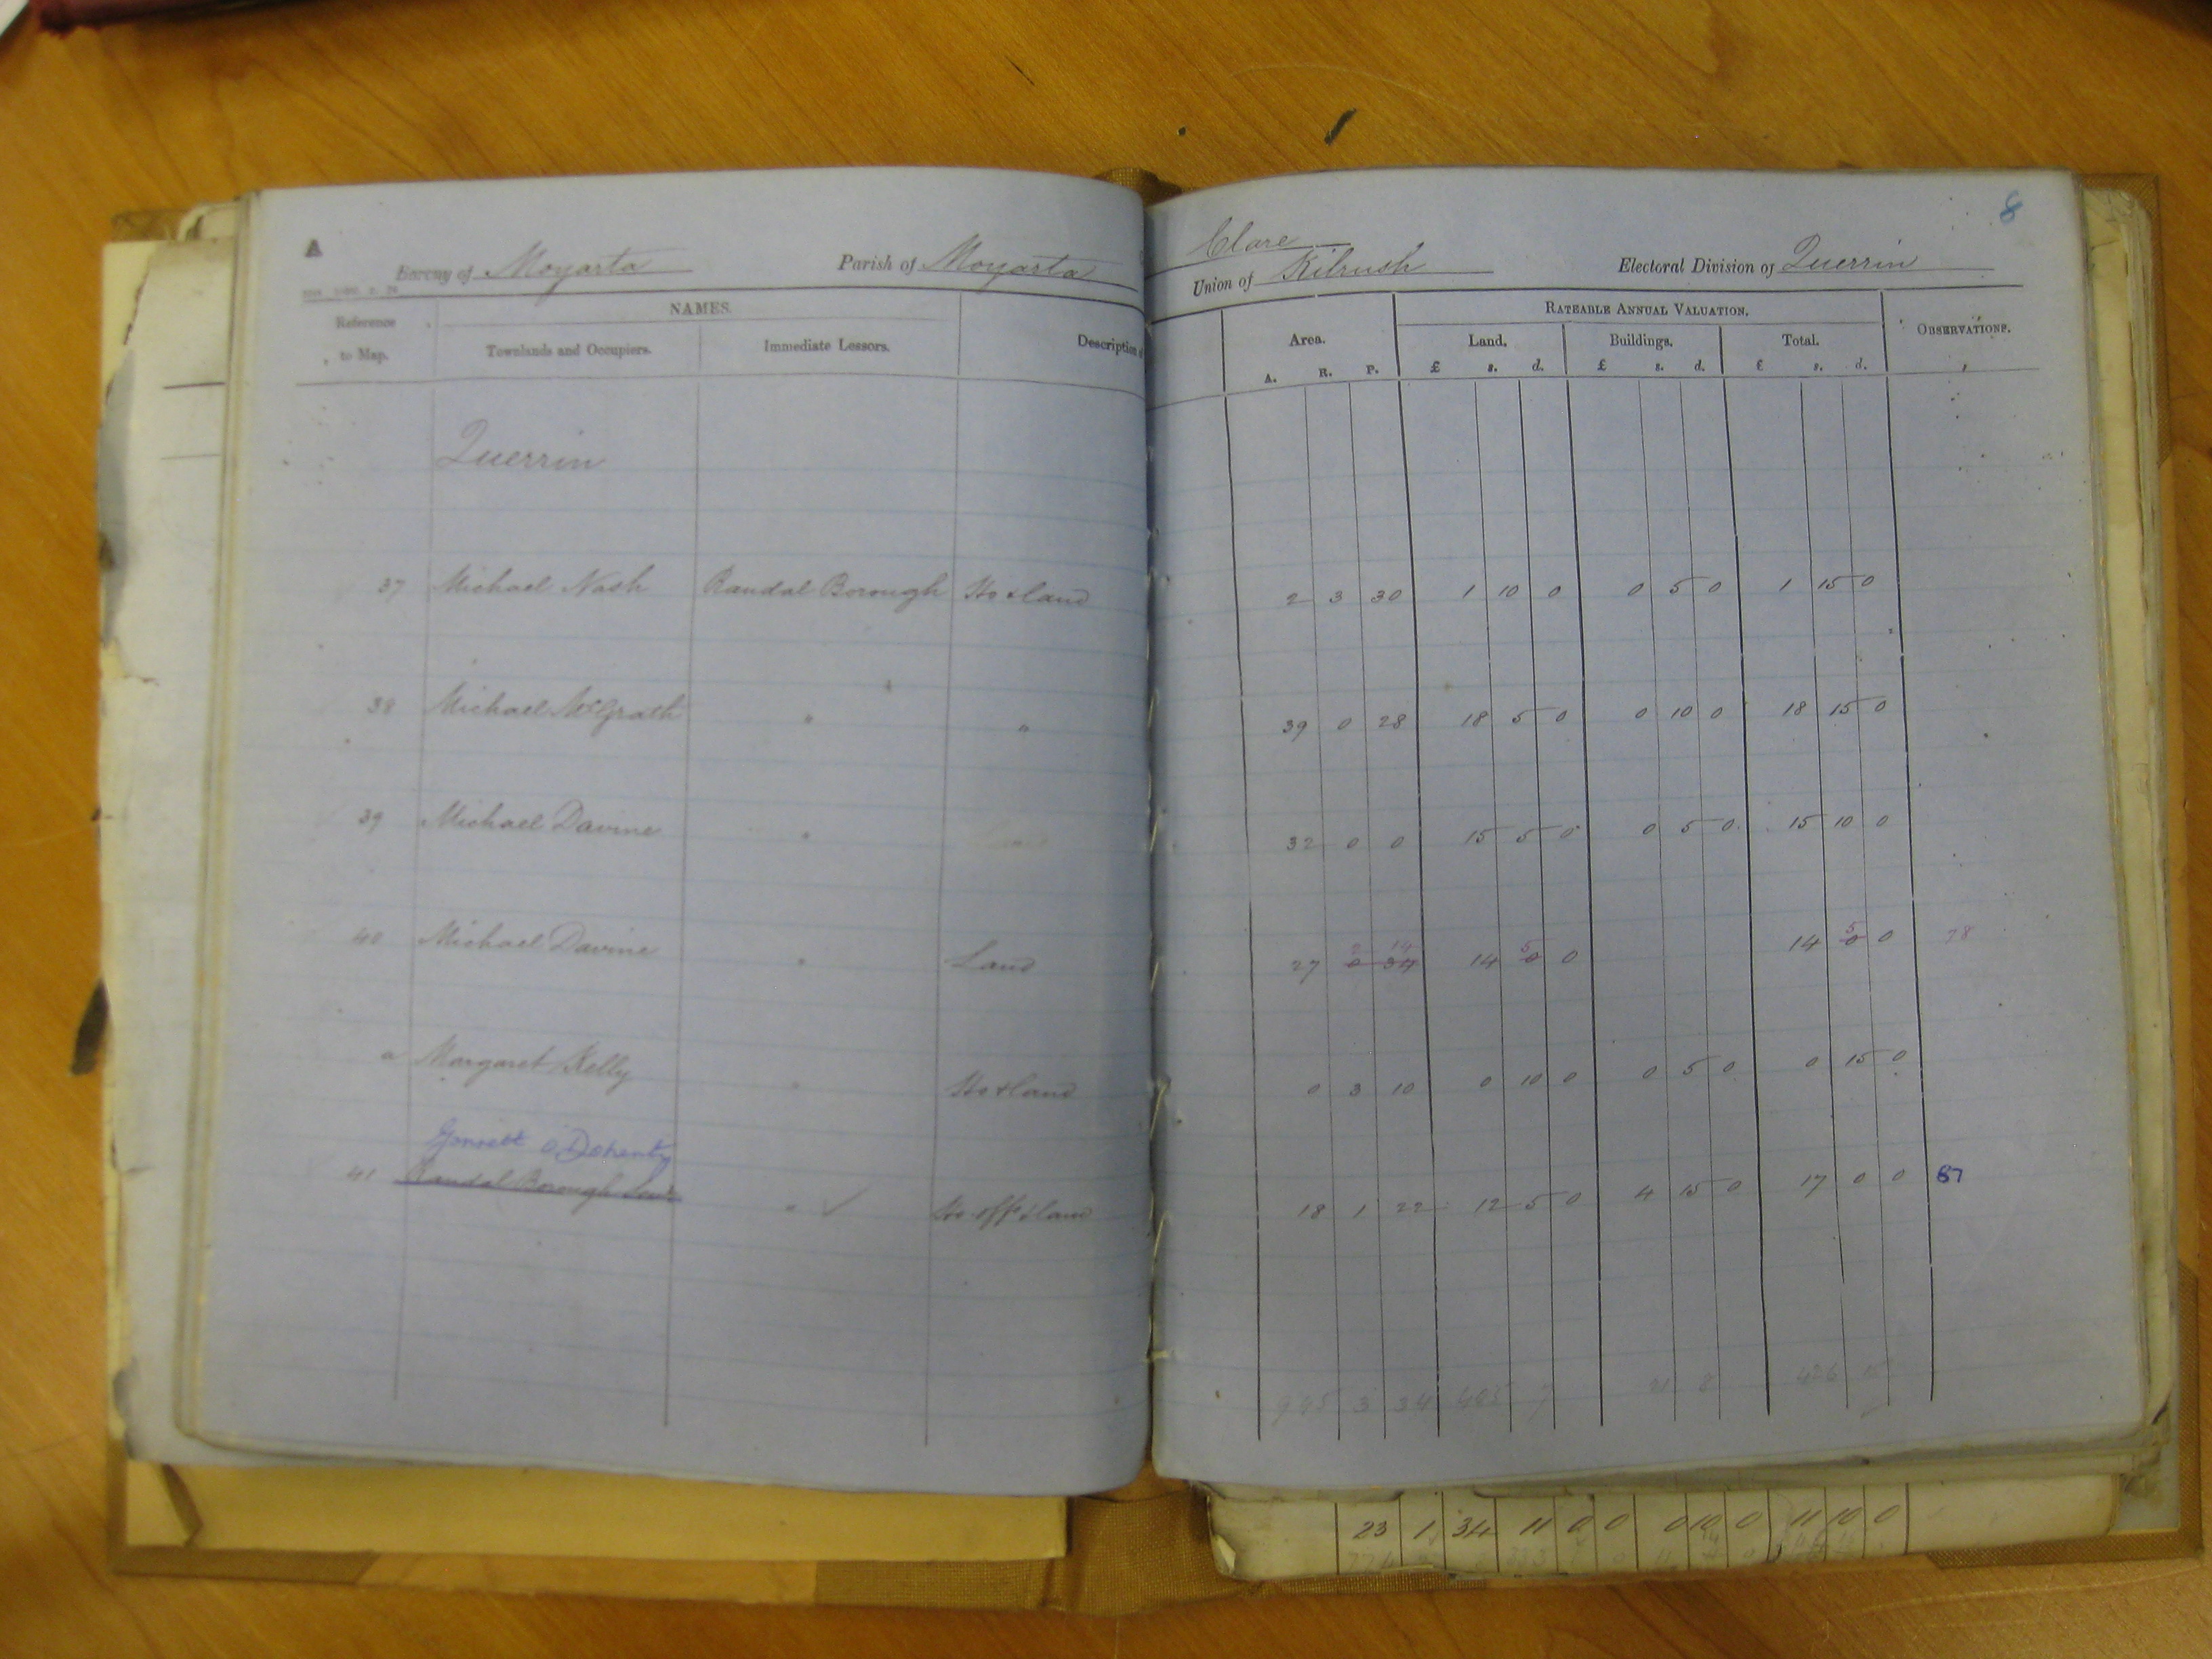 A
8
Clare
Barony of Moyarta Parish of Moyarta Union of Kilrush Electoral Division of Querrin
Reference to Map. NAMES. Description of Area. RATEABLE ANNUAL VALUATION. OBSERVATIONS.
Townlands and Occupiers. Immediate Lessors. Land. Buildings. Total.
A. R. P. £ s. d. £ s. d. £ s. d.
Querrin
37 Michael Nash Randal Borough Ho & land 2 3 30 1 10 0 0 5 0 1 15 0
38 Michael McGrath " " 39 0 28 18 5 0 0 10 0 18 15 0
39 Michael Davine " 32 0 0 15 5 0 0 5 0 15 10 0
2 14 5 5
40 Michael Davine " Land 27 0 34 14 0 0 14 0 0 78
a Margaret Kelly " Ho & land 0 3 10 0 10 0 0 5 0 0 15 0
Garrett O'Doherty
41 Randal Borough " ✓ Ho. off. & land 18 1 22 12 5 0 4 15 0 17 0 0 67
945 3 34 405 7 21 8 426 15
23 1 34 11 0 0 0 10 0 11 10 0